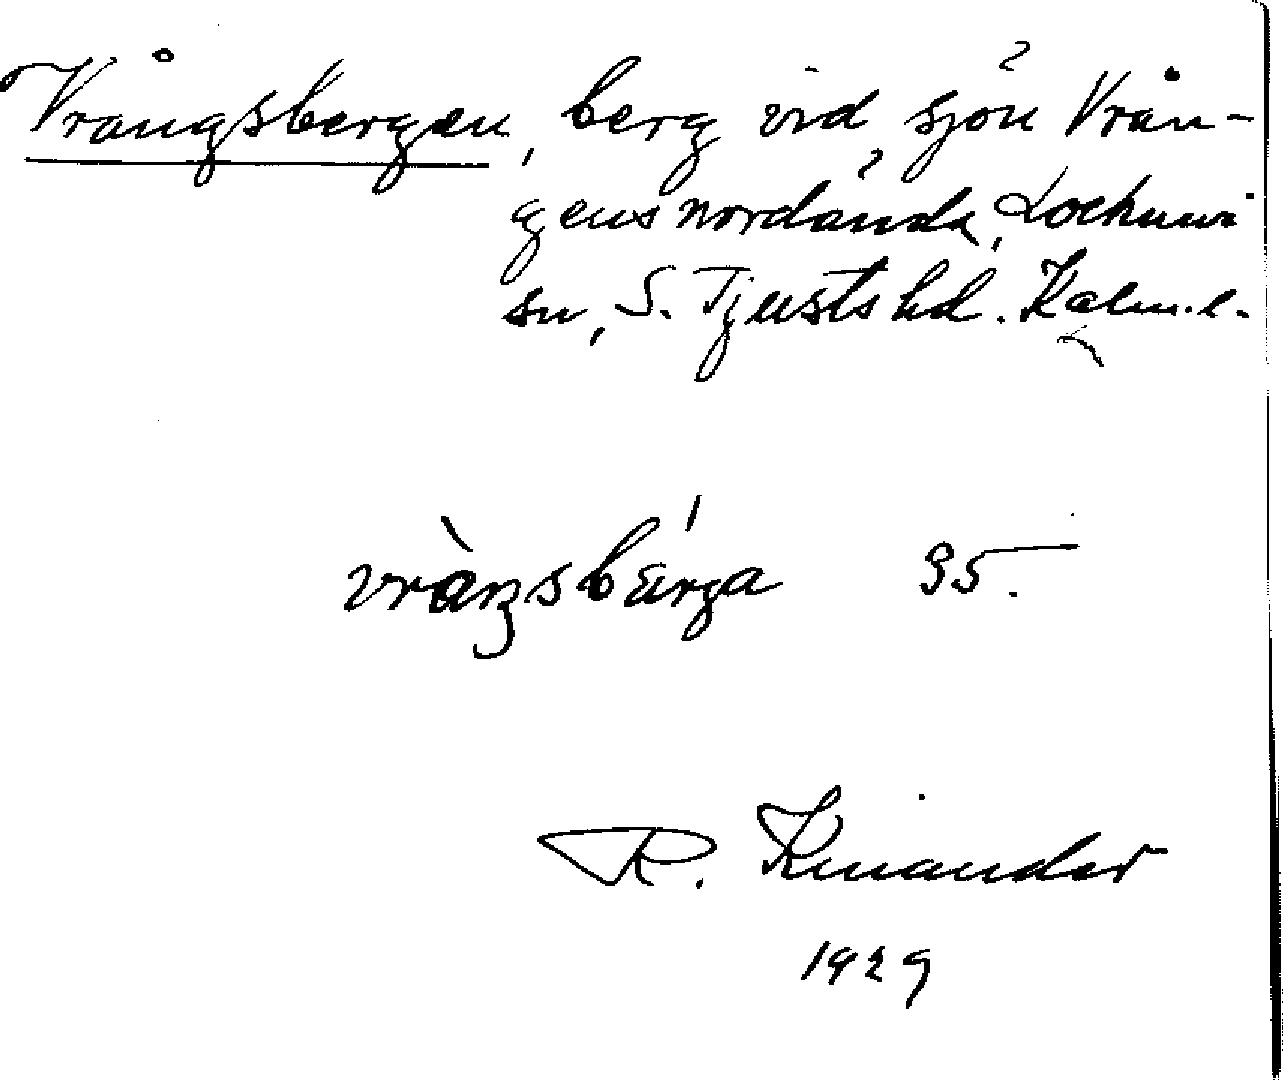 Vrångsbergen, berg vid sjön Vrån-
gens nordända, Lochnevi
sn, S. Tjusts hd. Kalm. l.
vràŋsbärga 95.
R. Kinander
1929